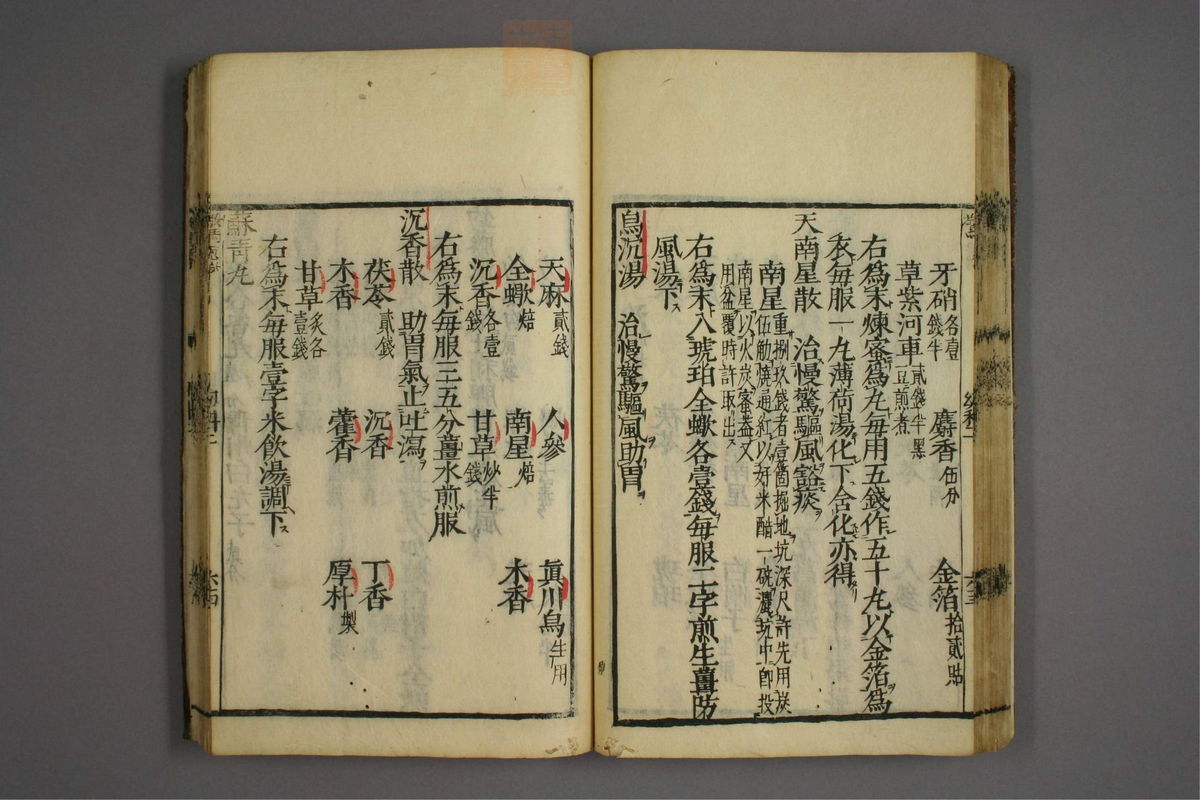 牙硝各壹錢半 麝香伍分 金箔拾貳貼
草紫河車貳錢半黑豆煎煮
右為末煉蜜為丸每用五錢作五十丸以金箔為
衣每服一丸薄荷湯化下含化亦得
天南星散 治慢驚驅風豁痰
南星重捌玖錢者壹箇掘地坑深尺許先用炭
伍觔燒通紅以好米醋一碗灑坑中即投
南星以火炭蜜蓋又
用盆覆時許取出
右為末入琥珀全蠍各壹錢每服二字煎生薑防
風湯下
烏沉湯 治慢驚驅風助胃
天麻貳錢 人參 真川烏生用
全蠍焙 南星焙 木香
沉香各壹錢 甘草炒半錢
右為末每服三五分薑水煎服
沉香散 助胃氣止吐瀉
茯苓貳錢 沉香 丁香
木香 藿香 厚朴製
甘草炙各壹錢
右為末每服壹字米飲湯調下
蘇青丸
幼科二
六十四